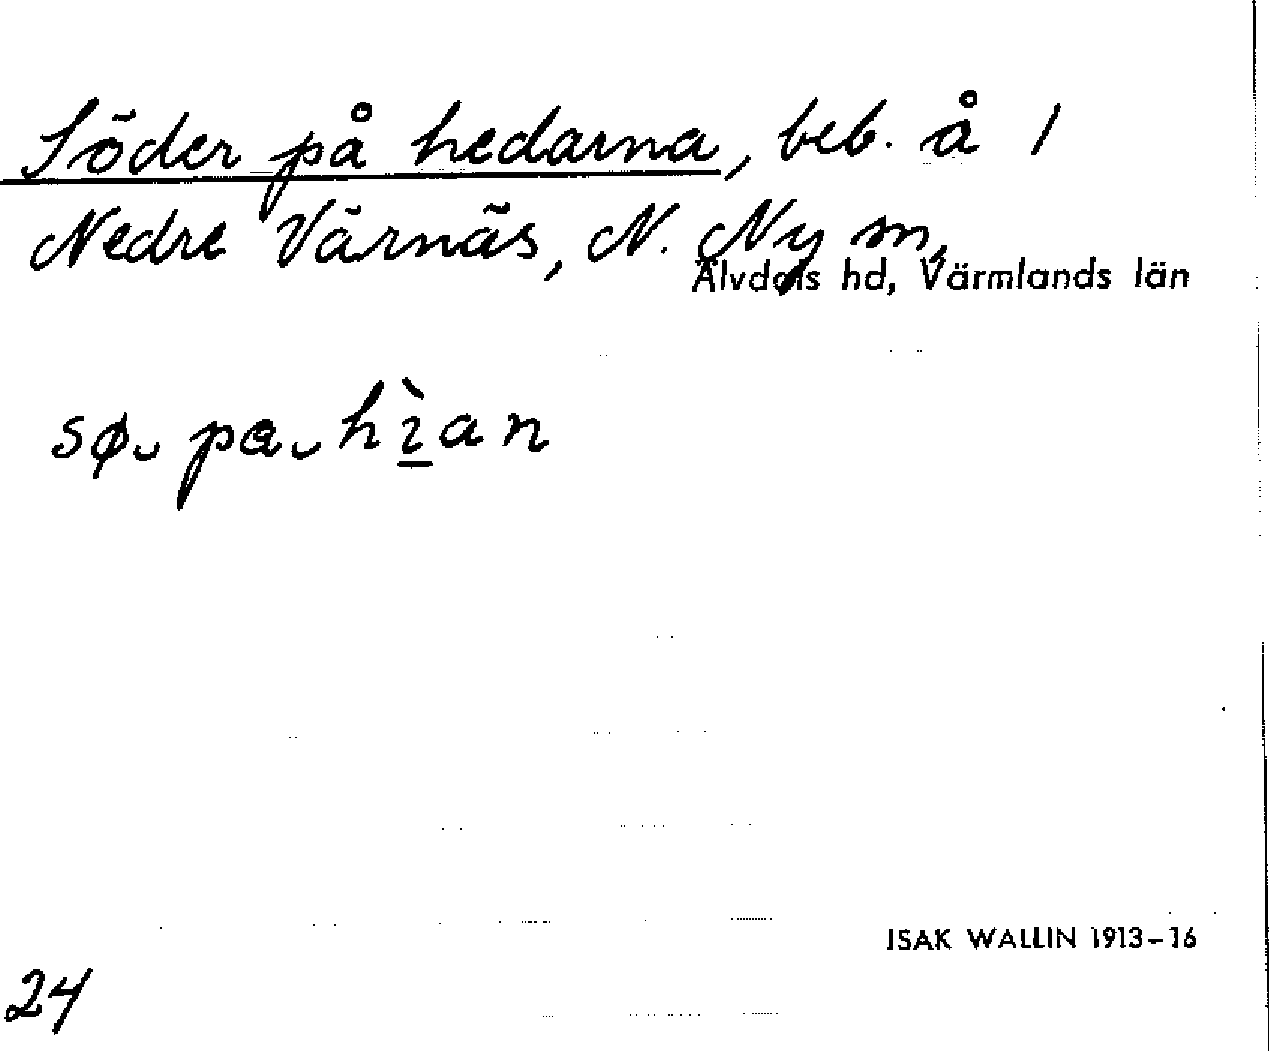 Söder på hedarna, beb. å 1
Nedre Värnäs, N. Ny sn,
Älvdals hd, Värmlands län
sø‿ pa‿ hìan
ISAK WALLIN 1913–16
24